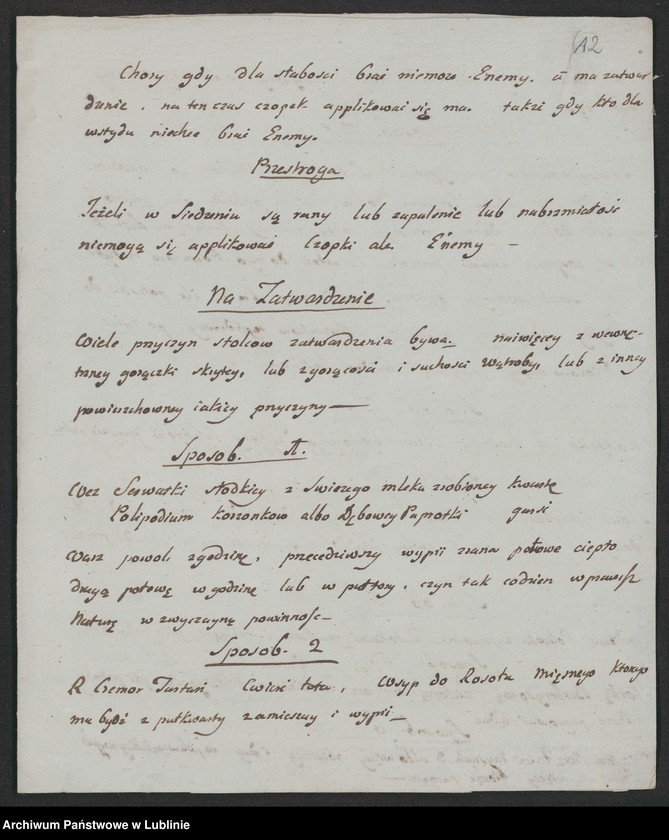 12
Chory gdy dla słabości brać niemoże Enemy. a ma zatwar
dzenie, na ten czas czopek applikować się ma. także gdy kto dla
wstydu niechce brać Enemy.
Przestroga
Jeżeli w Siedzeniu są rany lub zapalenie lub nabrzmiałość
niemogą się applikować Czopki ale Enemy —
Na Zatwardzenie
Wiele przyczyn stolcow zatwardzenia bywa. naiwięcey z wewnę-
trzney gorączki skrytey, lub zgorącości i suchości wątroby, lub z inney
powierzchowney iakiey przyczyny —
Sposob. 1.
Wez Serwatki słodkiey z swieżego mleka zrobioney kwartę
Polipodium korzonkow albo Dębowey Paprotki garść
Warz powoli zgodzinę, przecedziwszy wypii zrana połowę ciepło
drugą połowę w godzinę lub w puttory, czyn tak codzien wprawisz
Naturę w zwyczayną powinność —
Sposob. 2
R Cremor Tartari cwierć łota, Wsyp do Rosołu Mięsnego ktorego
ma bydź z pułkwarty zamieszay i wypii —
Archiwum Państwowe w Lublinie